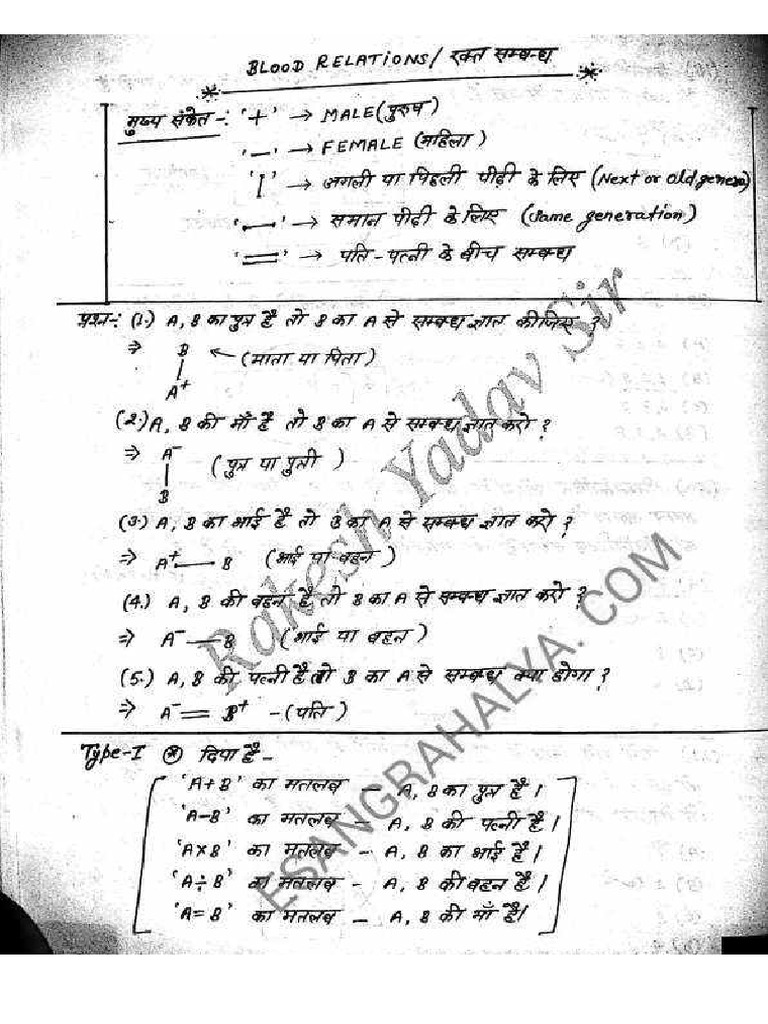 BLOOD RELATIONS/ रक्त सम्बन्ध
मुख्य संकेत-: '+' → MALE (पुरुष)
'—' → FEMALE (महिला)
'|' → अगली या पिछली पीढ़ी के लिए (Next or old genera)
'—' → समान पीढ़ी के लिए (Same generation)
'=' → पति-पत्नी के बीच सम्बन्ध
प्रश्न-: (1.) A, B का पुत्र है तो B का A से सम्बन्ध ज्ञात कीजिए ?
⇒ B ← (माता या पिता)
|
A+
(2.) A, B की माँ है तो B का A से सम्बन्ध ज्ञात करो ?
⇒ A- (पुत्र या पुत्री)
|
B
(3.) A, B का भाई है तो B का A से सम्बन्ध ज्ञात करो ?
⇒ A+ — B (भाई या बहन)
(4.) A, B की बहन है तो B का A से सम्बन्ध ज्ञात करो ?
⇒ A- — B (भाई या बहन)
(5.) A, B की पत्नी है तो B का A से सम्बन्ध क्या होगा ?
⇒ A- = B+ -(पति)
Type-I ⊛ दिया है-
'A+B' का मतलब — A, B का पुत्र है।
'A-B' का मतलब — A, B की पत्नी है।
'A×B' का मतलब - A, B का भाई है।
'A÷B' का मतलब - A, B की बहन है।
'A=B' का मतलब — A, B की माँ है।
Rakesh Yadav Sir
ESANGRAHALYA.COM